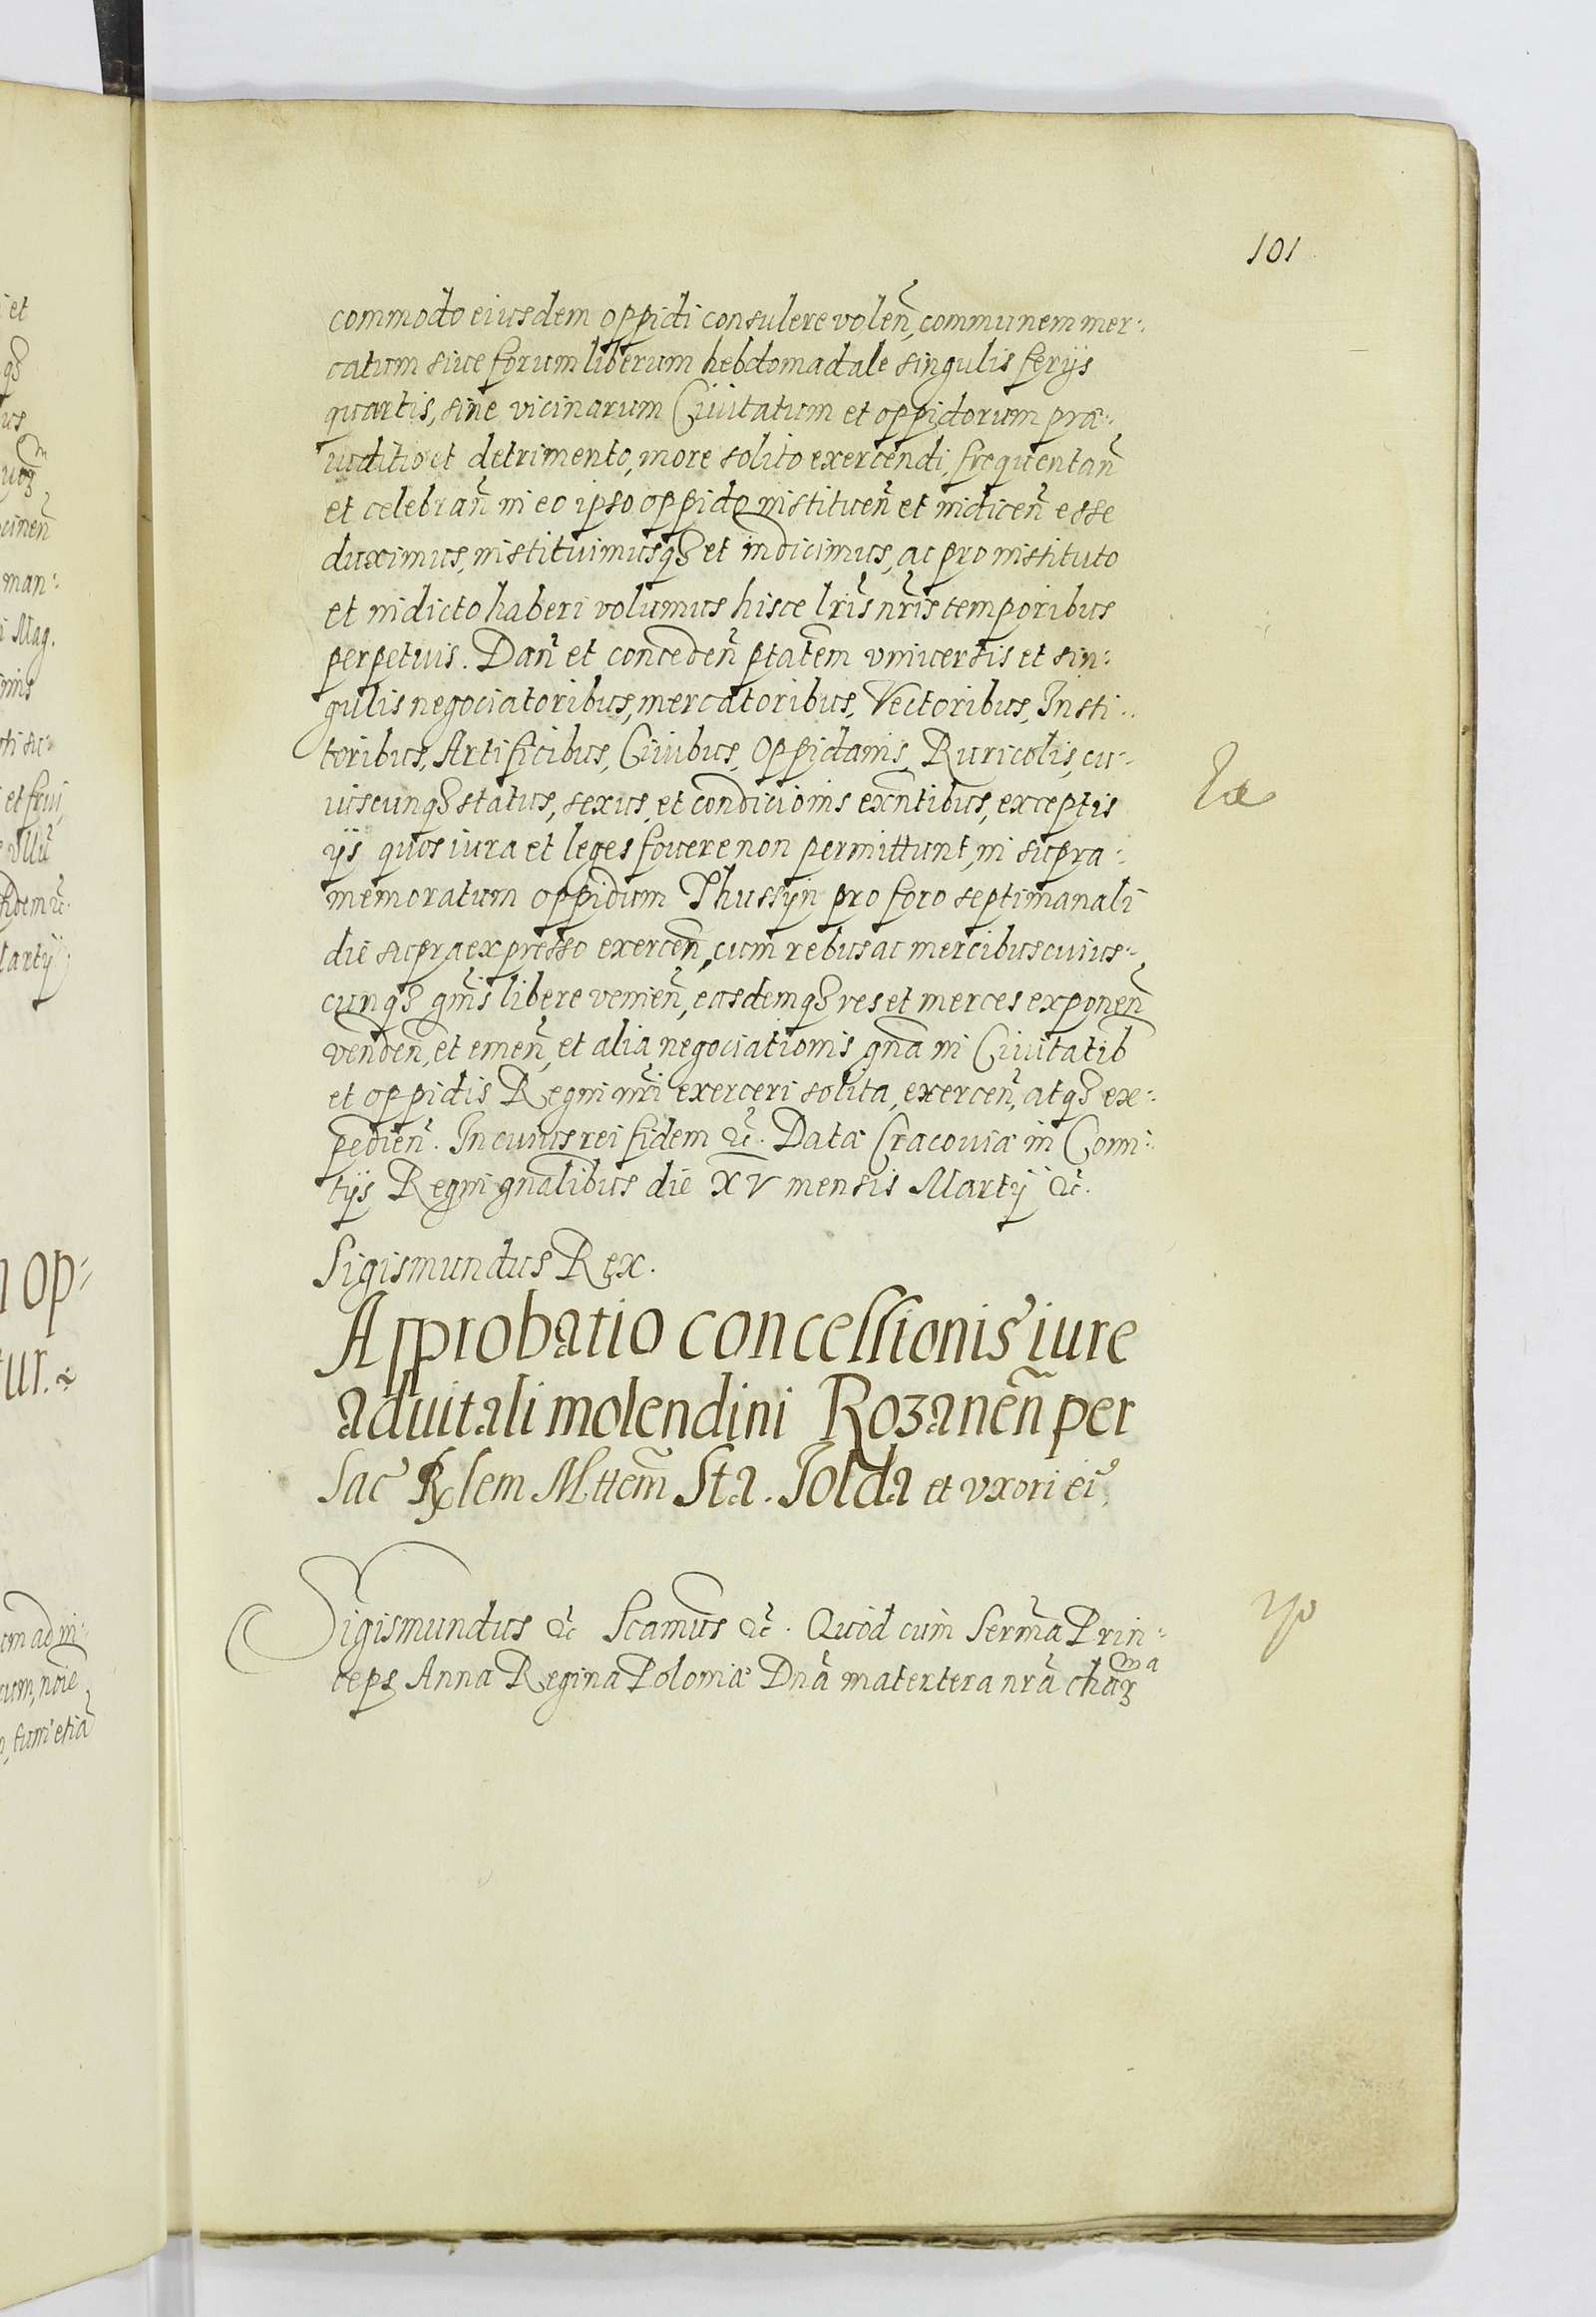 101
commodo eiusdem oppidi consulere volen̄, communem mer-
catum siue forum liberum hebdomadale singulis ferijs
quartis, sine vicinarum Ciuitatum et oppidorum præ-
iuditio et detrimento, more solito exercendi, frequentan̄
et celebran̄ in eo ipso oppido instituen̄ et indicen̄ esse
duximus, instituimusqȝ et indicimus, ac pro instituto
et indicto haberi volumus hisce lr̄is nr̄is temporibus
perpetuis. Dan̄ et conceden̄ ptatem̄ vniuersis et sin-
gulis negociatoribus, mercatoribus, Vectoribus, Insti-
toribus, Artificibus, Ciuibus, Oppidanis, Ruricolis, cu-
iuscunqȝ status, sexus, et condicionis exn̄tibus, exceptis
ijs quos iura et leges fouere non permittunt, in supra-
memoratum oppidum Thussyn pro foro septimanali
die supra expresso exercen̄, cum rebus ac mercibus cuius-
cunqȝ gn̄is libere venien̄, easdemqȝ res et merces exponen̄
venden̄, et emen̄, et alia negociationis gn̄a in Ciuitatib
et oppidis Regni nr̄i exerceri solita, exercen̄, atqȝ ex-
pedien̄. In cuius rei fidem &c̄. Datæ Cracouiæ in Comi-
tijs Regni gn̄alibus die XV mensis Martij &c̄.
Sigismundus Rex.
Approbatio concessionis iure
aduitali molendini Rozanen̄ per
Sac̄ Rlem Mttem̄ Sta. Jolda et vxori ei9
Sigismundus &c̄ Scamus &c̄. Quod cum Serm̄a Prin-
ceps Anna Regina Poloniæ Dn̄a matertera nr̄a char̄ma